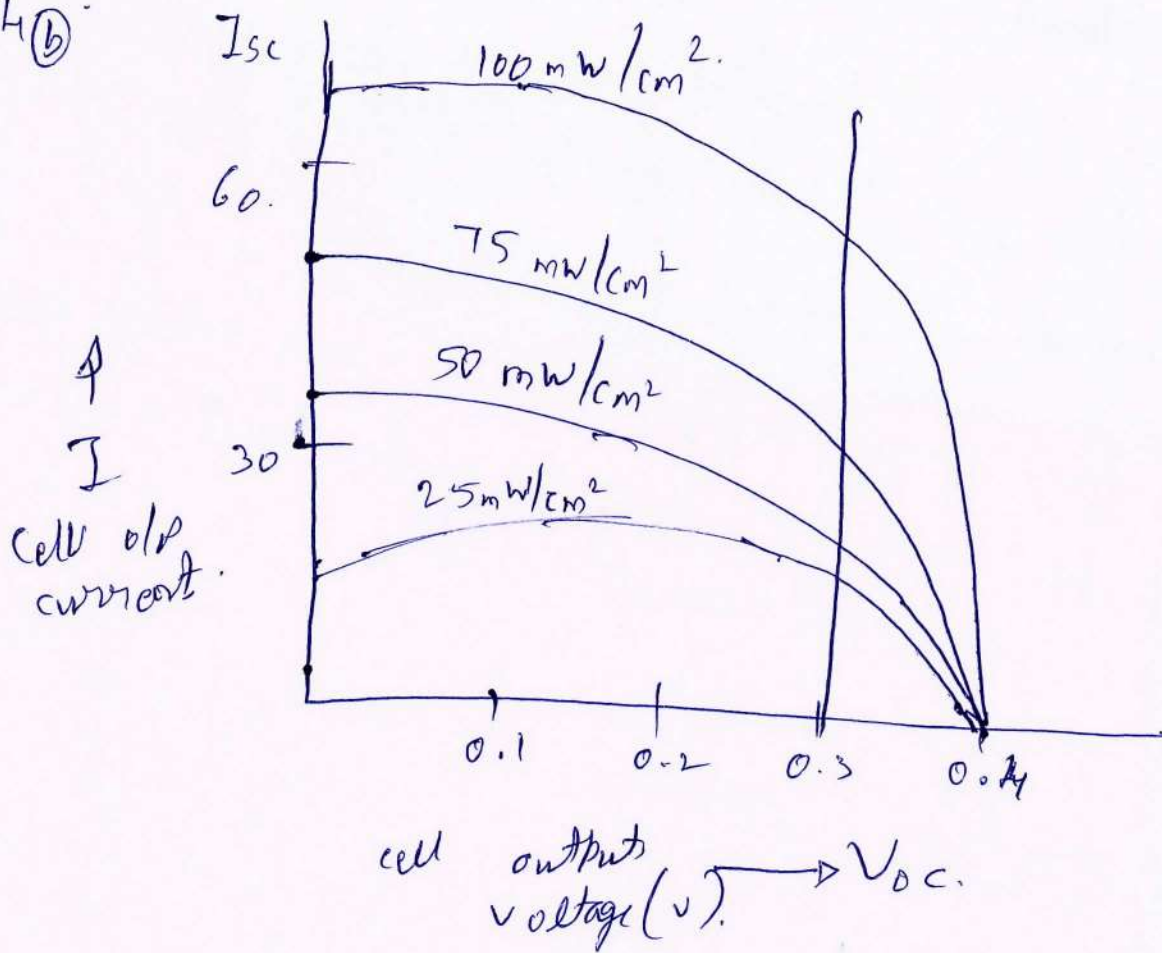 4 b
Isc
100 mW/cm².
60.
75 mW/cm²
50 mW/cm²
30
25mW/cm²
I
Cell o/p
current.
0.1
0.2
0.3
0.4
cell output
voltage(v). VOC.